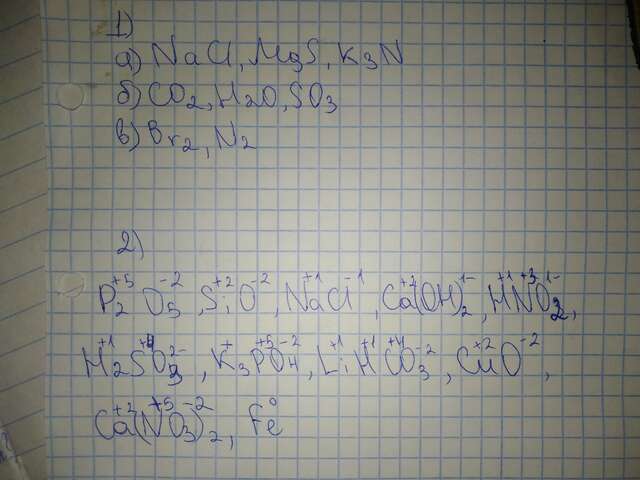 1)
а) NaCl, MgS, K₃N
б) CO₂, H₂O, SO₃
в) Br₂, N₂
2)
P₂⁺⁵O₅⁻², Si⁺²O⁻², Na⁺¹Cl⁻¹, Ca⁺²(OH)₂¹⁻, H⁺¹N⁺³O₂¹⁻,
H₂⁺¹S⁺⁴O₃²⁻, K₃⁺P⁺⁵O₄⁻², Li⁺¹H⁺¹C⁺⁴O₃⁻², Cu⁺²O⁻²,
Ca⁺²(N⁺⁵O₃⁻²)₂, Fe⁰